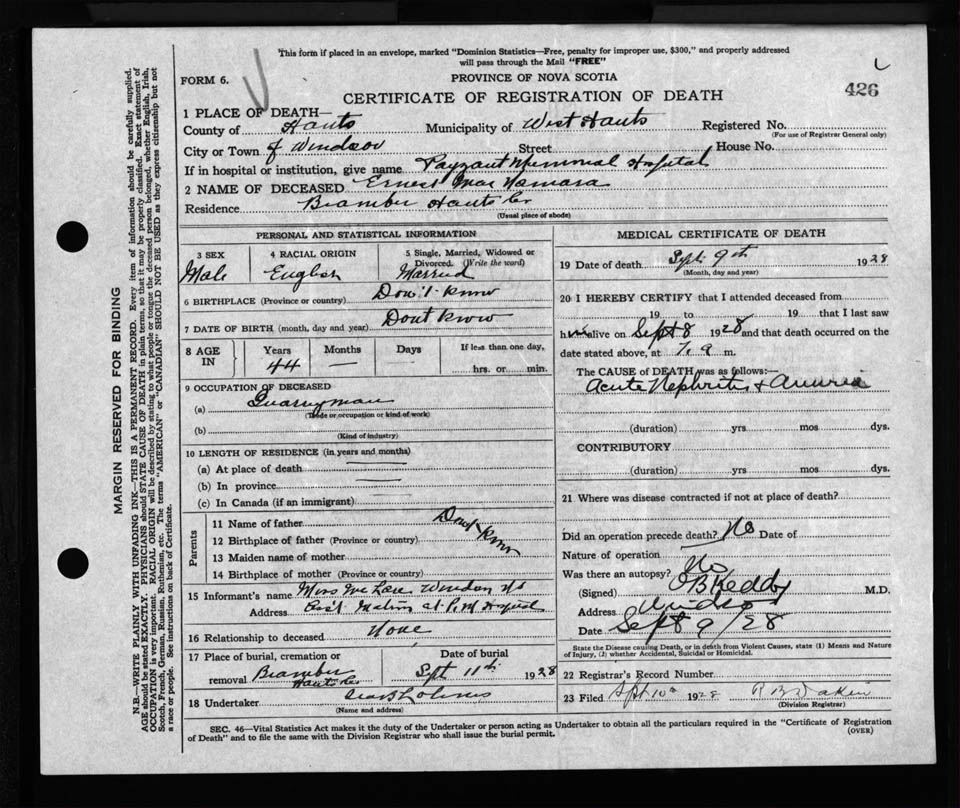 This form if placed in an envelope, marked "Dominion Statistics—Free, penalty for improper use, $300," and properly addressed
will pass through the Mail "FREE"
FORM 6.
PROVINCE OF NOVA SCOTIA
426
CERTIFICATE OF REGISTRATION OF DEATH
1 PLACE OF DEATH—
County of Hants Municipality of West Hants Registered No.
(For use of Registrar General only)
City or Town of Windsor Street House No.
If in hospital or institution, give name Payzant Memorial Hospital
2 NAME OF DECEASED Ernest MacNamara
Residence Bramber Hants Co
(Usual place of abode)
PERSONAL AND STATISTICAL INFORMATION
3 SEX Male
4 RACIAL ORIGIN English
5 Single, Married, Widowed or Divorced. (Write the word) Married
6 BIRTHPLACE (Province or country) Don't know
7 DATE OF BIRTH (month, day and year) Dont know
8 AGE IN Years 44 Months — Days If less than one day, hrs. or min.
9 OCCUPATION OF DECEASED
(a) Quarryman
(Trade or occupation or kind of work)
(b)
(Kind of industry)
10 LENGTH OF RESIDENCE (in years and months)
(a) At place of death
(b) In province
(c) In Canada (if an immigrant)
Parents
11 Name of father
12 Birthplace of father (Province or country)
13 Maiden name of mother
14 Birthplace of mother (Province or country)
Dont know
15 Informant's name Miss McLean Windsor NS
Address at P. M. Hospital
16 Relationship to deceased None
17 Place of burial, cremation or removal Bramber Hants Co
Date of burial Sept 11th 1928
18 Undertaker
(Name and address)
MEDICAL CERTIFICATE OF DEATH
19 Date of death Sept. 9th 1928
(Month, day and year)
20 I HEREBY CERTIFY that I attended deceased from
19 to 19 that I last saw
him alive on Sept 8 1928 and that death occurred on
date stated above, at 7. a m.
The CAUSE of DEATH was as follows:—
Acute Nephritis & Anuria
(duration) yrs mos dys.
CONTRIBUTORY
(duration) yrs mos dys.
21 Where was disease contracted if not at place of death?
Did an operation precede death? No Date of
Nature of operation
Was there an autopsy? No
(Signed) O B Keddy M.D.
Address Windsor
Date Sept 9/28
State the Disease causing Death, or in death from Violent Causes, state (1) Means and Nature
of Injury, (2) whether Accidental, Suicidal or Homicidal.
22 Registrar's Record Number
23 Filed Sept 10th 1928 R B Dakin
(Division Registrar)
SEC. 46—Vital Statistics Act makes it the duty of the Undertaker or person acting as Undertaker to obtain all the particulars required in the "Certificate of Registration
of Death" and to file the same with the Division Registrar who shall issue the burial permit.
(OVER)
MARGIN RESERVED FOR BINDING
N.B.—WRITE PLAINLY WITH UNFADING INK—THIS IS A PERMANENT RECORD. Every item of information should be carefully supplied.
AGE should be stated EXACTLY. PHYSICIANS should STATE CAUSE OF DEATH in plain terms, so that it may be properly classified. Exact statement of
OCCUPATION is very important. RACIAL ORIGIN will be described by stating to what people or tongue the deceased person belonged, whether English, Irish,
Scotch, French, German, Russian, Ruthenian, etc. The terms "AMERICAN" or "CANADIAN" SHOULD NOT BE USED as they express citizenship but not
a race or people. See instructions on back of Certificate.